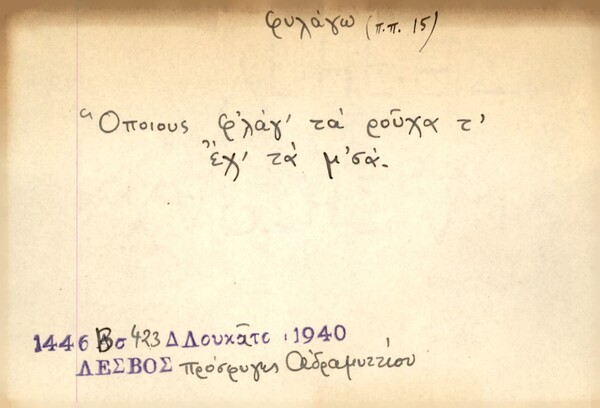 φυλάγω (π.π. 15)
Ὅποιους φ'λάγ' τὰ ροῦχα τ'
ἔχ' τὰ μ'σά.
1446 Βσ 423 Δ Λουκᾶτο 1940
ΛΕΣΒΟΣ πρόσφυγες Ἀδραμυττίου